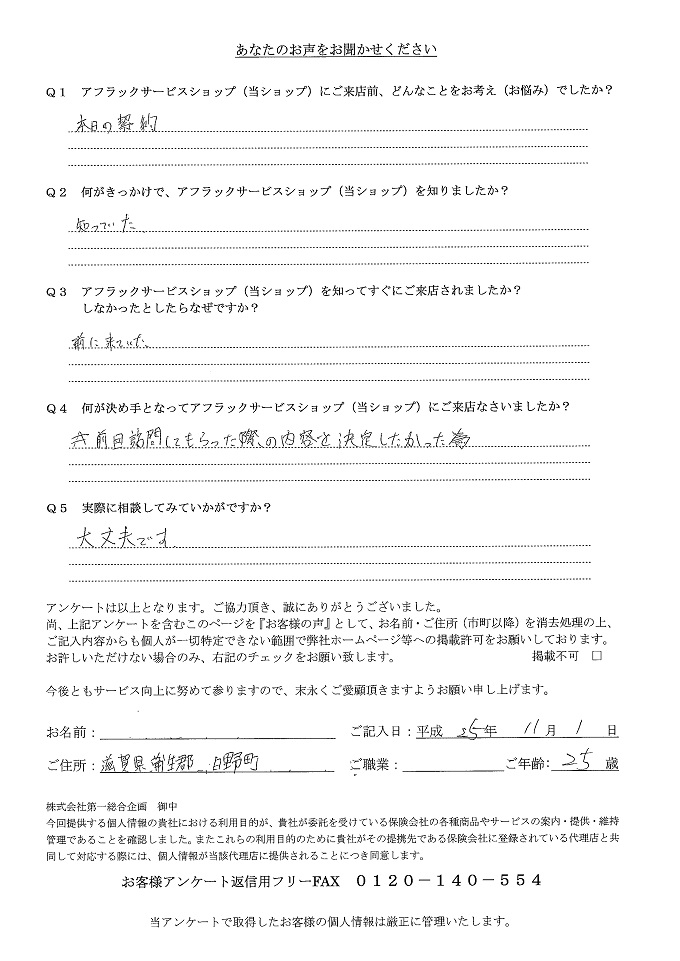 あなたのお声をお聞かせください
Q1 アフラックサービスショップ（当ショップ）にご来店前、どんなことをお考え（お悩み）でしたか？
本日の契約
Q2 何がきっかけで、アフラックサービスショップ（当ショップ）を知りましたか？
知っていた
Q3 アフラックサービスショップ（当ショップ）を知ってすぐにご来店されましたか？
しなかったとしたらなぜですか？
前に来ていた
Q4 何が決め手となってアフラックサービスショップ（当ショップ）にご来店なさいましたか？
前回訪問してもらった際の内容を決定したかった為
Q5 実際に相談してみていかがですか？
大丈夫です
アンケートは以上となります。ご協力頂き、誠にありがとうございました。
尚、上記アンケートを含むこのページを『お客様の声』として、お名前・ご住所（市町以降）を消去処理の上、
ご記入内容からも個人が一切特定できない範囲で弊社ホームページ等への掲載許可をお願いしております。
お許しいただけない場合のみ、右記のチェックをお願い致します。 掲載不可 □
今後ともサービス向上に努めて参りますので、末永くご愛顧頂きますようお願い申し上げます。
お名前： ご記入日：平成 25年 11月 1日
ご住所：滋賀県蒲生郡日野町 ご職業： ご年齢： 25歳
株式会社第一総合企画 御中
今回提供する個人情報の貴社における利用目的が、貴社が委託を受けている保険会社の各種商品やサービスの案内・提供・維持
管理であることを確認しました。またこれらの利用目的のために貴社がその提携先である保険会社に登録されている代理店と共
同して対応する際には、個人情報が当該代理店に提供されることにつき同意します。
お客様アンケート返信用フリーFAX 0120－140－554
当アンケートで取得したお客様の個人情報は厳正に管理いたします。